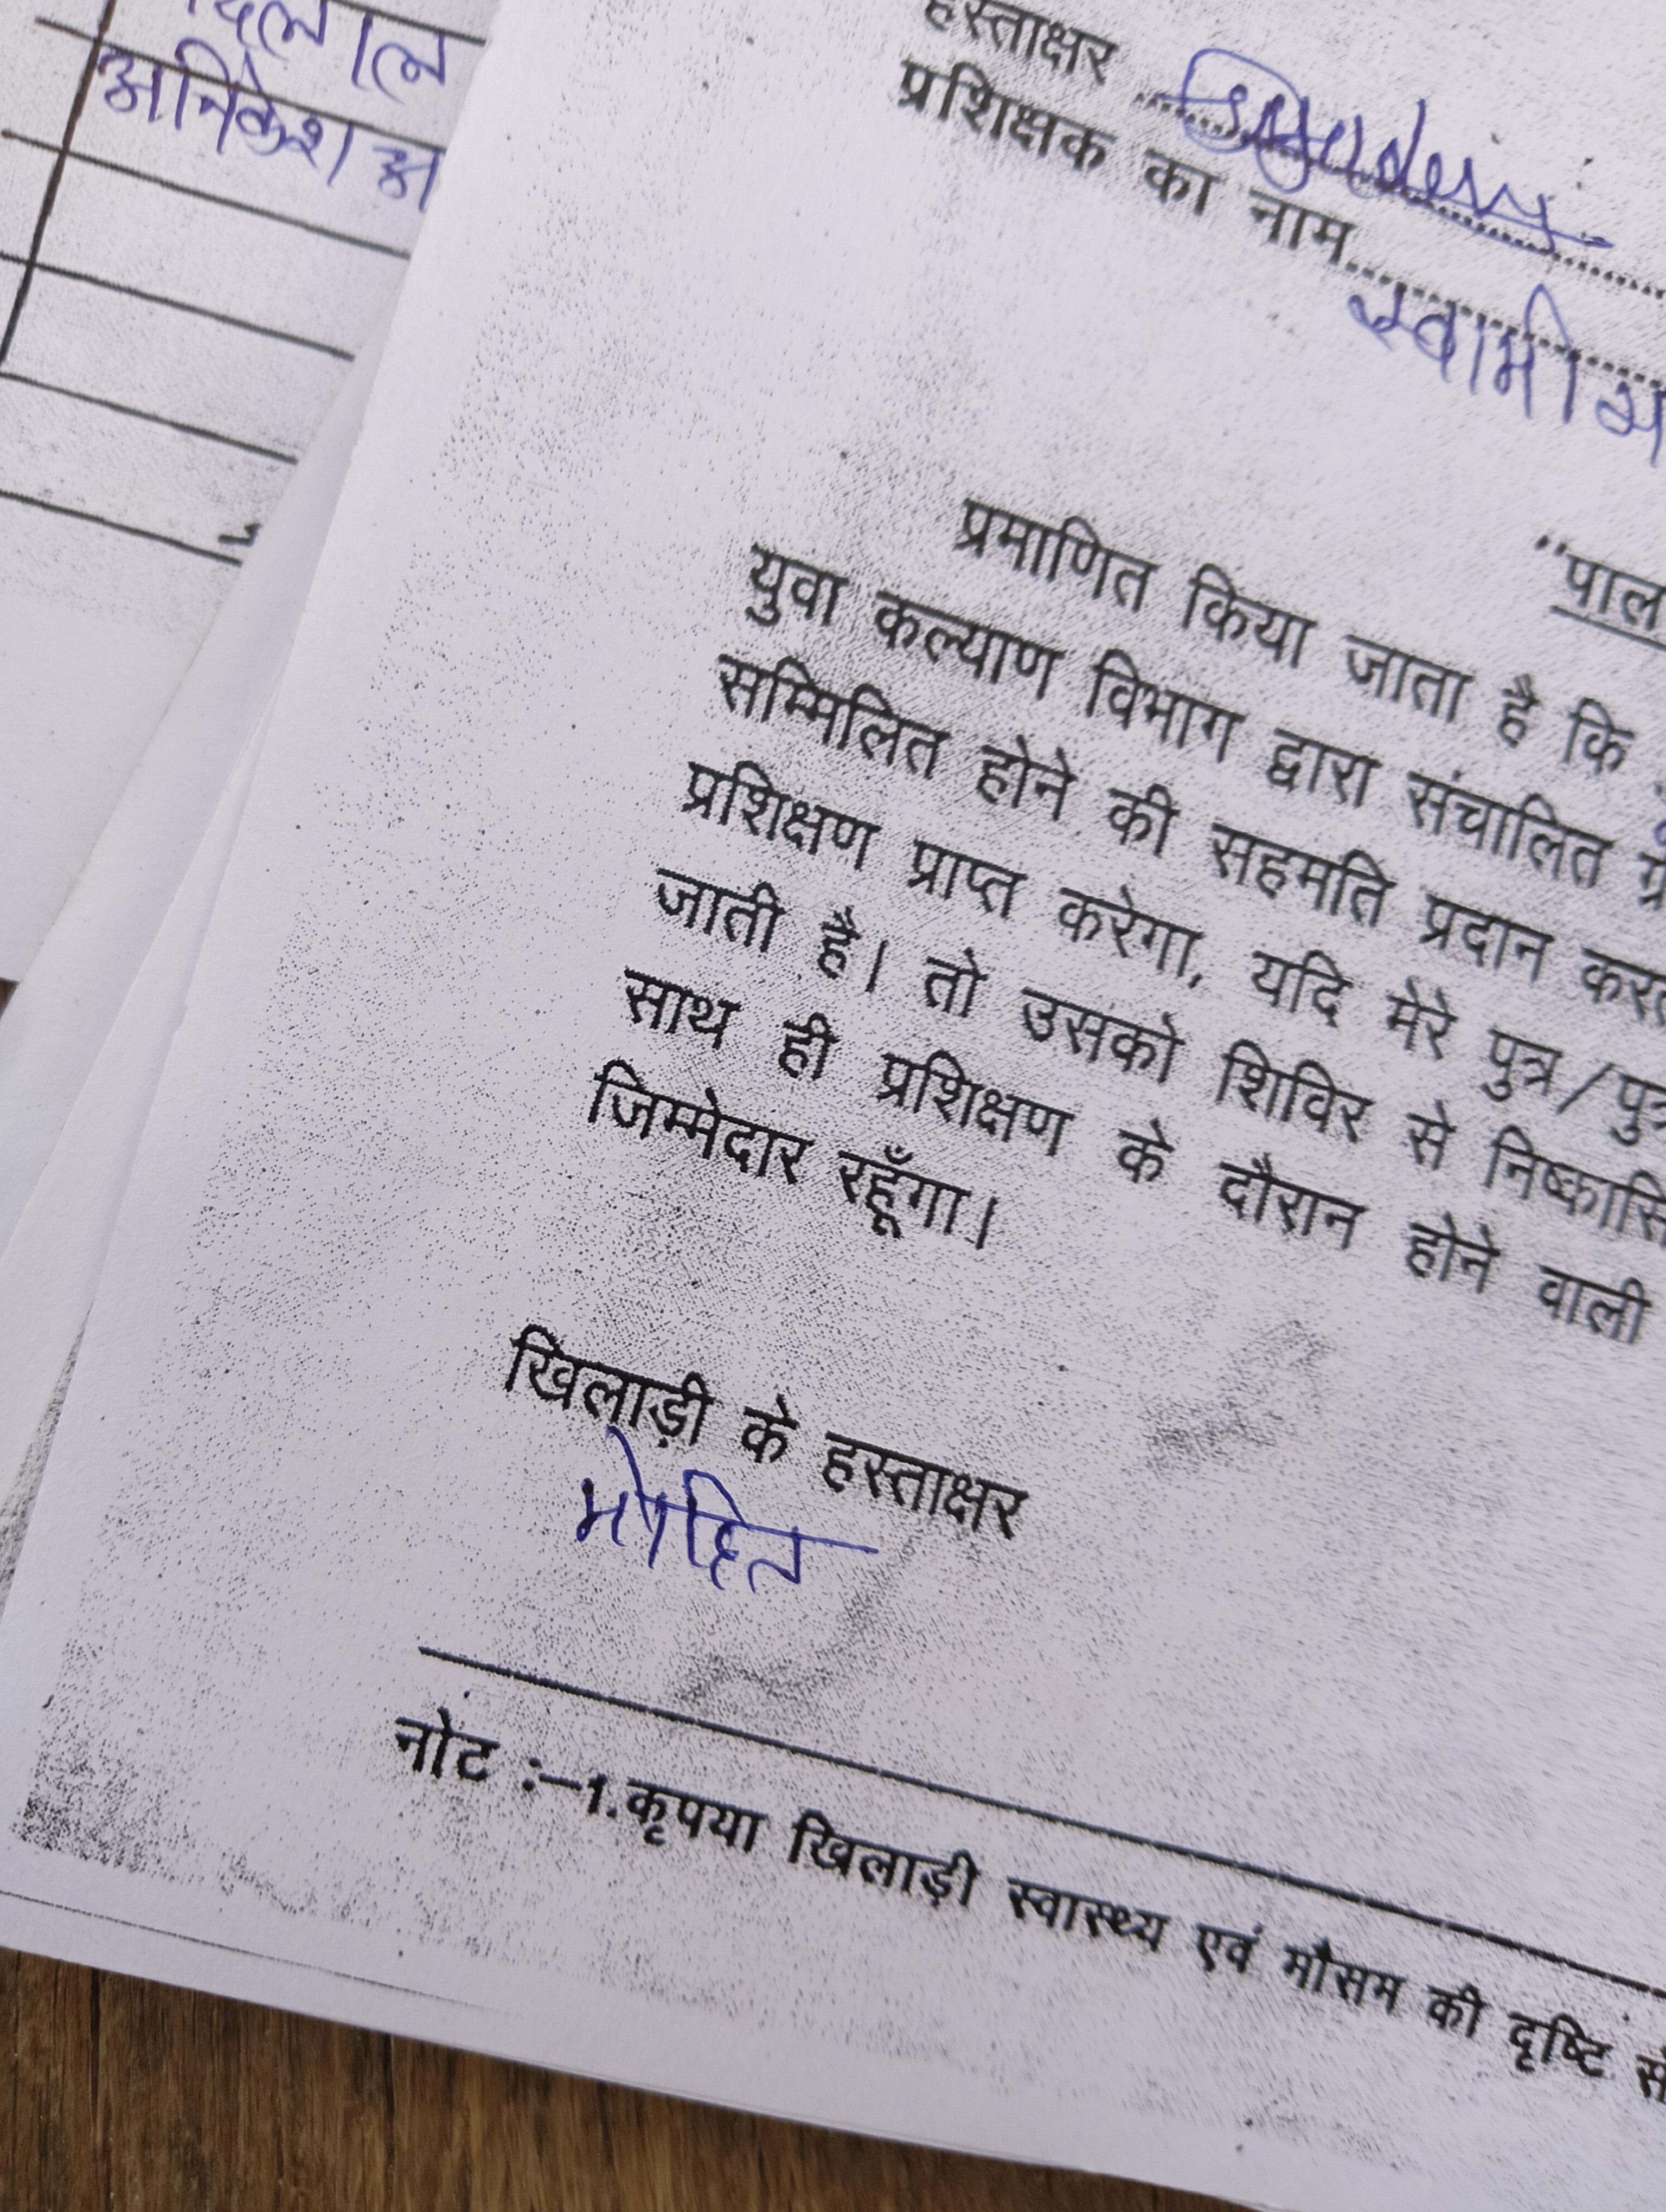 लाल
अनिकेश
हस्ताक्षर
प्रशिक्षक का नाम
स्वामी
"पाल
प्रमाणित किया जाता है कि
युवा कल्याण विभाग द्वारा संचालित ग्र
सम्मिलित होने की सहमति प्रदान करत
प्रशिक्षण प्राप्त करेगा, यदि मेरे पुत्र/पुत्र
जाती है। तो उसको शिविर से निष्कासि
साथ ही प्रशिक्षण के दौरान होने वाली
जिम्मेदार रहूँगा।
खिलाड़ी के हस्ताक्षर
मोहित
नोट :–1.कृपया खिलाड़ी स्वास्थ्य एवं मौसम की दृष्टि से